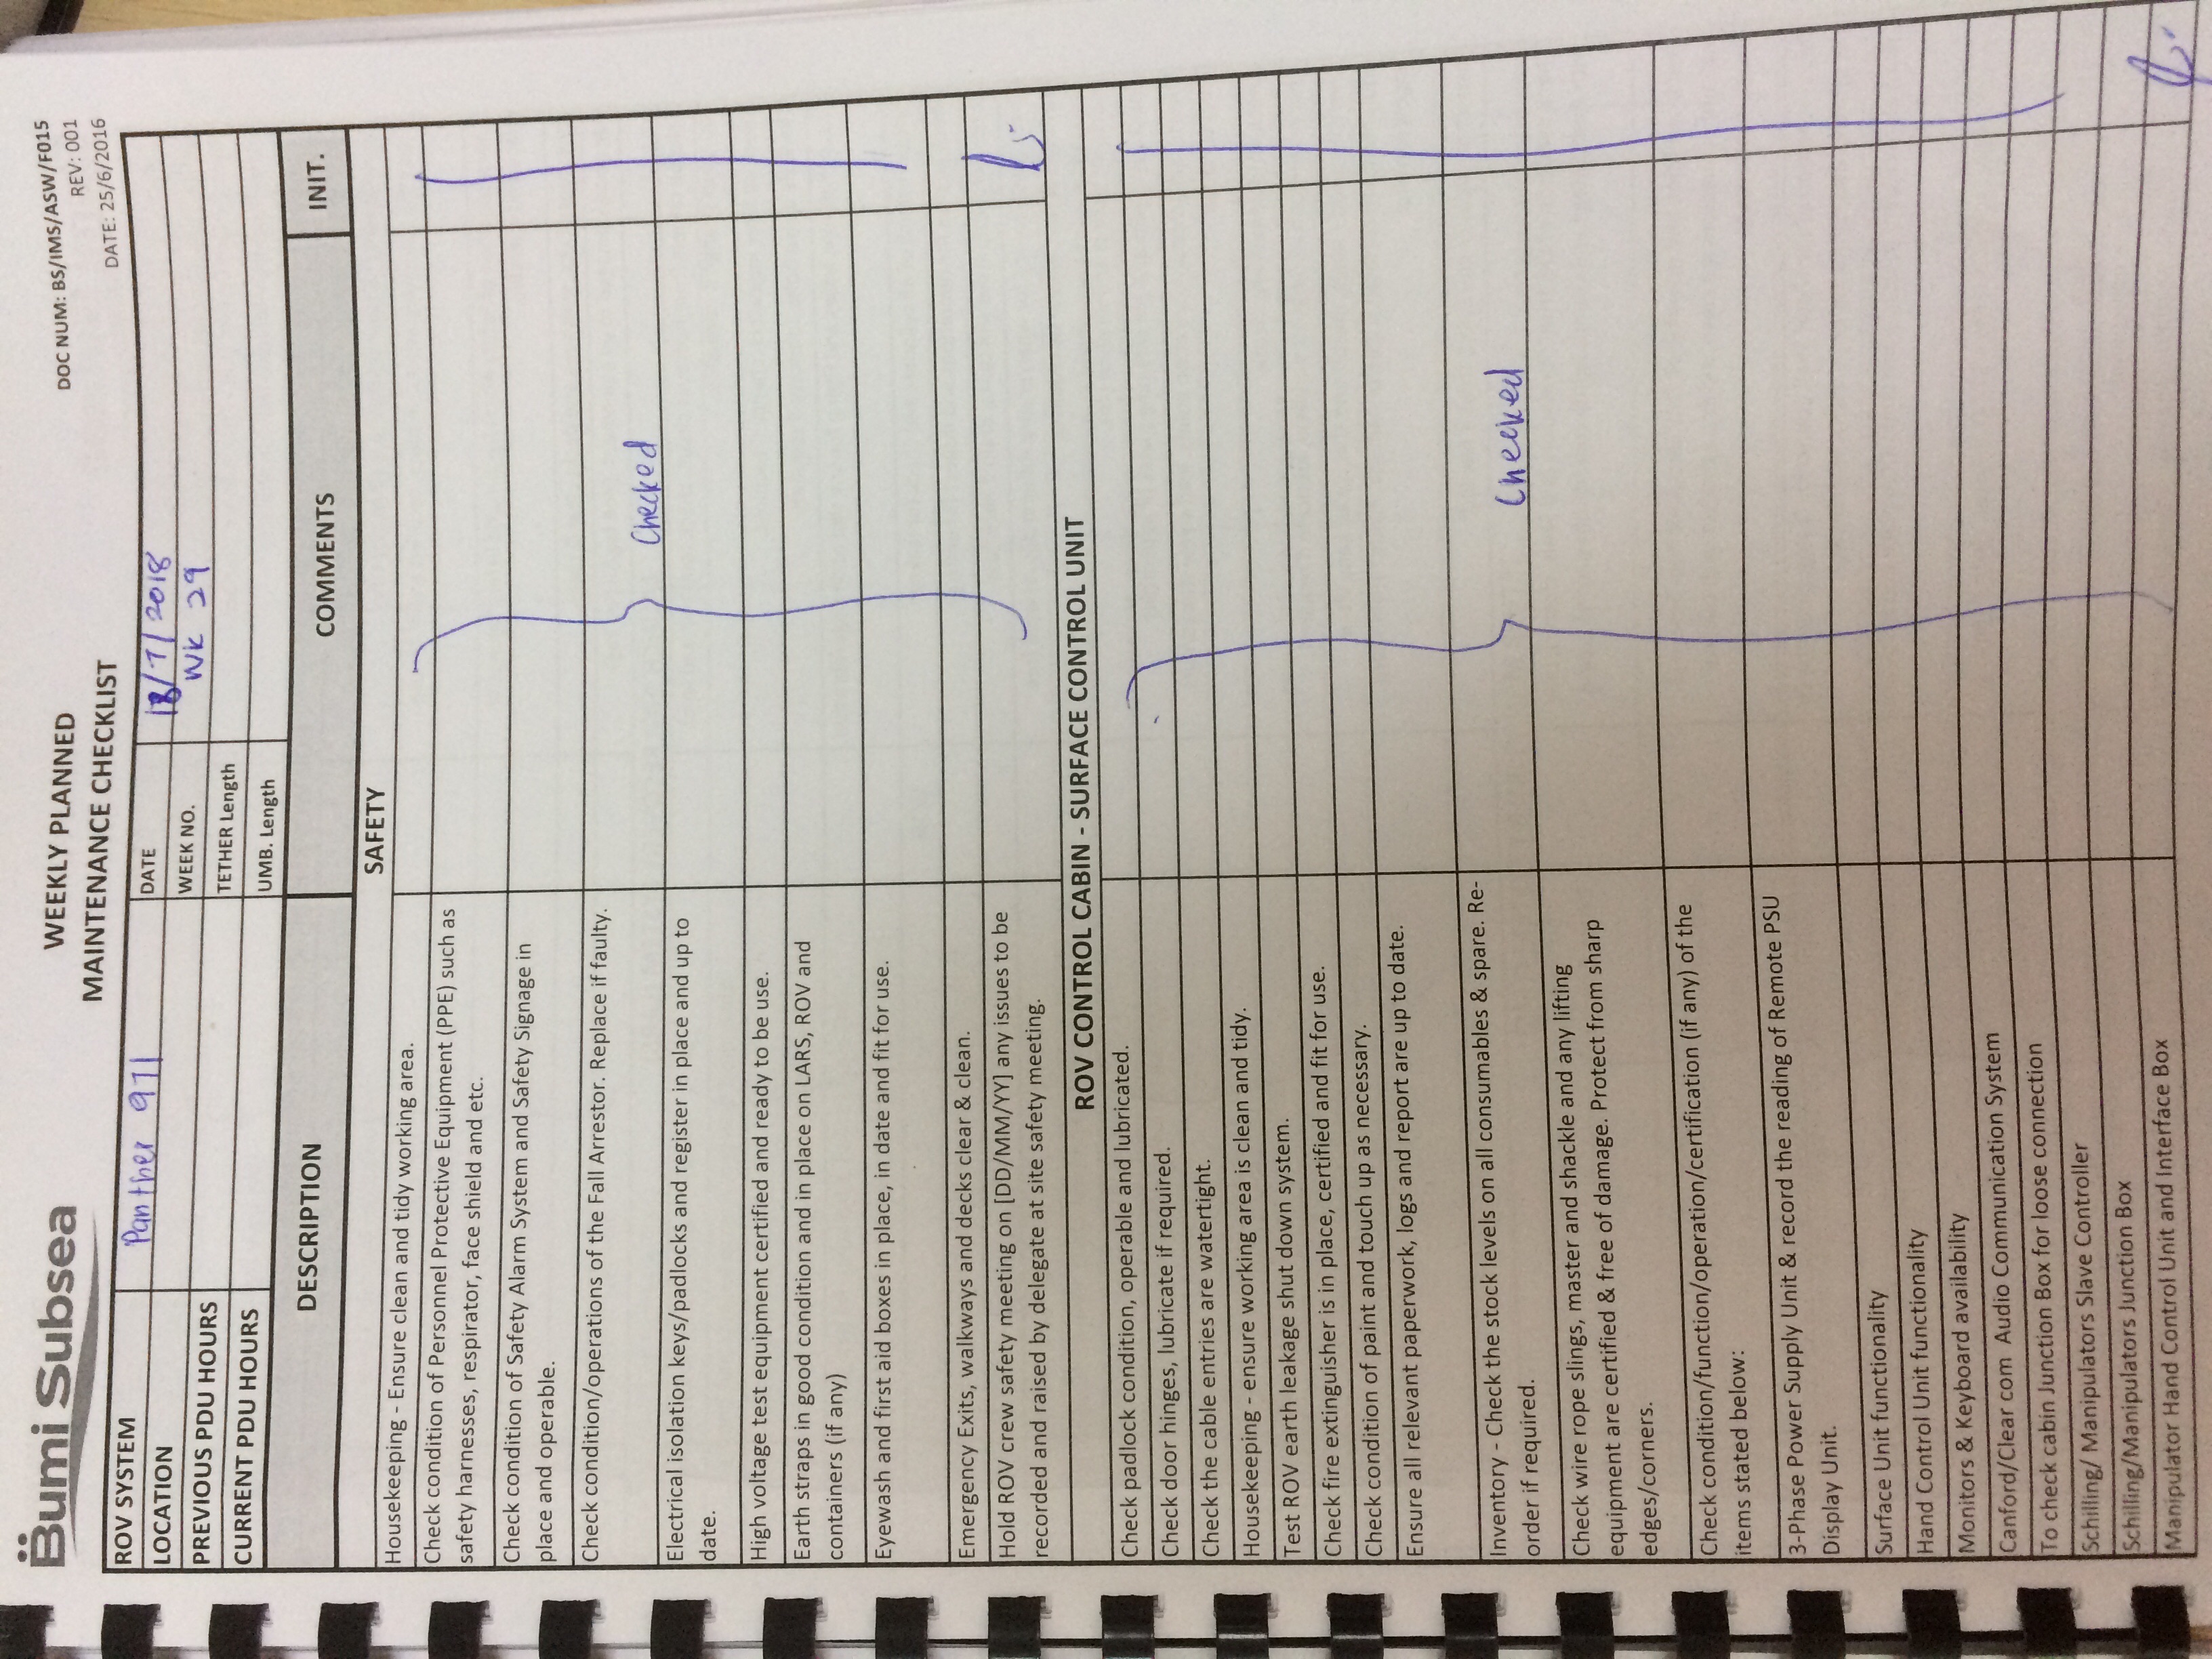 Bumi Subsea
WEEKLY PLANNED
MAINTENANCE CHECKLIST
DOC NUM: BS/IMS/ASW/F015
REV: 001
DATE: 25/6/2016
ROV SYSTEM Panther 971 DATE 18/7/2018
LOCATION WEEK NO. Wk 29
PREVIOUS PDU HOURS TETHER Length
CURRENT PDU HOURS UMB. Length
DESCRIPTION COMMENTS INIT.
SAFETY
Housekeeping - Ensure clean and tidy working area.
Check condition of Personnel Protective Equipment (PPE) such as
safety harnesses, respirator, face shield and etc.
Check condition of Safety Alarm System and Safety Signage in
place and operable.
Check condition/operations of the Fall Arrestor. Replace if faulty.
Checked
Electrical isolation keys/padlocks and register in place and up to
date.
High voltage test equipment certified and ready to be use.
Earth straps in good condition and in place on LARS, ROV and
containers (if any)
Eyewash and first aid boxes in place, in date and fit for use.
Emergency Exits, walkways and decks clear & clean.
Hold ROV crew safety meeting on [DD/MM/YY] any issues to be
recorded and raised by delegate at site safety meeting.
ROV CONTROL CABIN - SURFACE CONTROL UNIT
Check padlock condition, operable and lubricated.
Check door hinges, lubricate if required.
Check the cable entries are watertight.
Housekeeping - ensure working area is clean and tidy.
Test ROV earth leakage shut down system.
Check fire extinguisher is in place, certified and fit for use.
Check condition of paint and touch up as necessary.
Ensure all relevant paperwork, logs and report are up to date.
Inventory - Check the stock levels on all consumables & spare. Re-
order if required.
Checked
Check wire rope slings, master and shackle and any lifting
equipment are certified & free of damage. Protect from sharp
edges/corners.
Check condition/function/operation/certification (if any) of the
items stated below:
3-Phase Power Supply Unit & record the reading of Remote PSU
Display Unit.
Surface Unit functionality
Hand Control Unit functionality
Monitors & Keyboard availability
Canford/Clear com Audio Communication System
To check cabin Junction Box for loose connection
Schilling/ Manipulators Slave Controller
Schilling/Manipulators Junction Box
Manipulator Hand Control Unit and Interface Box